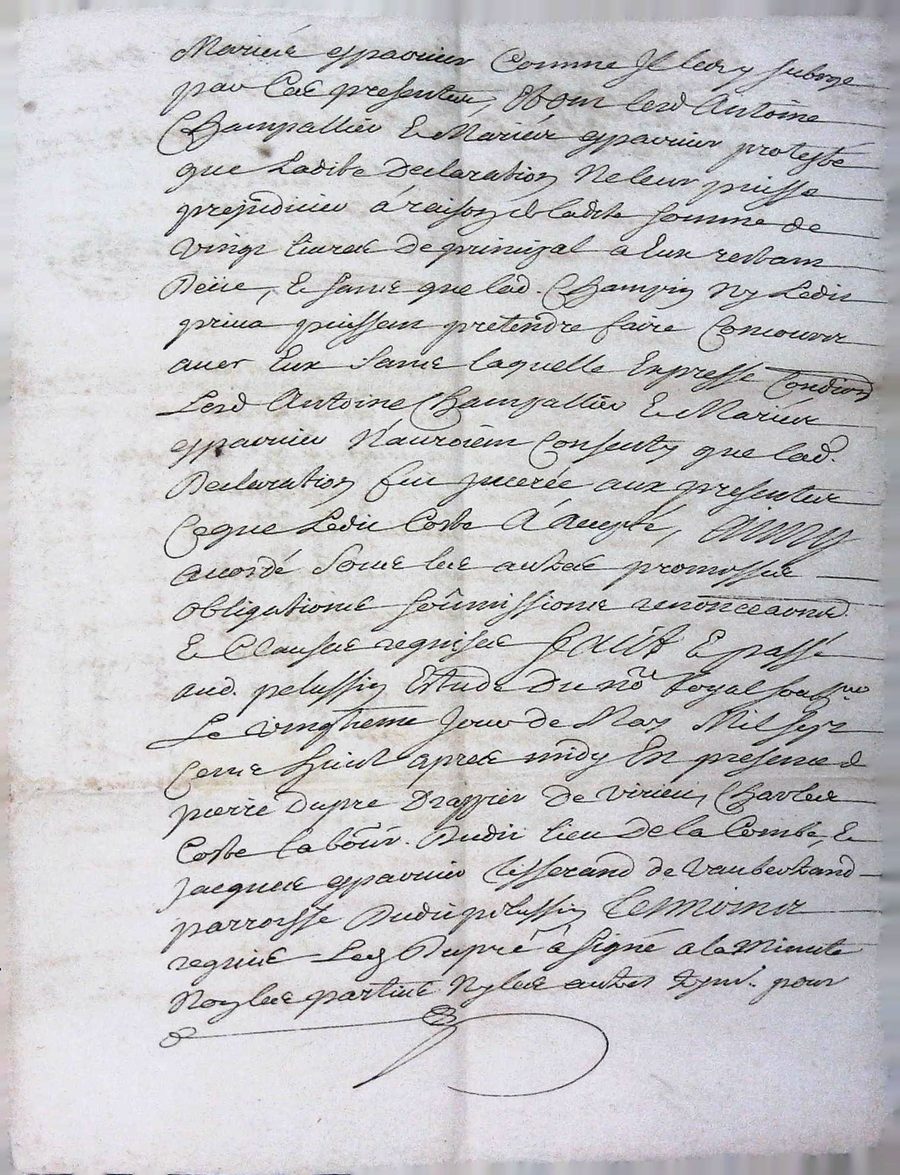 Mariée esparvier Comme Il led y subroge
par Ces presentes, Et ont lesd Antoine
Champallier & Marieé esparvier protesté
que Ladite Declaration Ne leur puisse
prejudicier à raison de ladite somme de
vingt livres De principal a Eux restant
Deüe, & sans que lad. Champin Ny Ledit
puissent pretendre faire Concourir
avec Eux sans laquelle Expresse Condion
Lesd Antoine Champallier & Mariéé
esparvier N'auroient Consenty que lad.
Declaration fut Inserée aux presentes
Ceque Ledit Coste A Accepté, Ainsy
acordé sous les autres promesses
obligations soûmissions renonceaons
& Clauses requises faict & passé
aud. pelussin Estude Du nore Royal soubsne
Le vingtieme Jour de May Mil sept
Cents huict apres midy En presence de
pierre Dupre Drappier De virieu, Charles
Coste labour. Dudit lieu De la Combe, &
Jacques esparvier tisserand de vaubertrand
parroisse Dudit pelussin tesmoins
requis Led Dupré à signé a la Minute
Non les parties Ny les autres pour